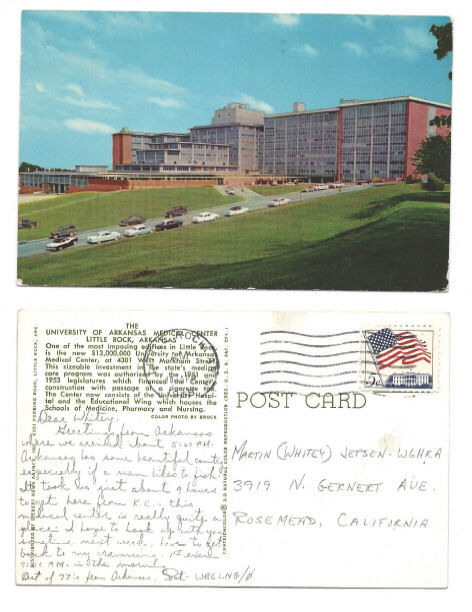 THE
UNIVERSITY OF ARKANSAS MEDICAL CENTER
LITTLE ROCK, ARKANSAS
One of the most imposing edifices in Little Rock
is the new $13,000,000 University of Arkansas
Medical Center, at 4301 West Markham Street.
This sizeable investment in the state's medical
care program was authorized by the 1951 and
1953 legislatures which financed the Center's
construction with passage of a cigarette tax.
The Center now consists of the University Hosp-
ital and the Educational Wing which houses the
Schools of Medicine, Pharmacy and Nursing.
COLOR PHOTO BY BROCK
Dear Whitey,
Greetings from Arkansas
where we arrived about 5:00 A.M.
Arkansas has some beautiful country
especially if a man likes to fish.
It took us just about 9 hours
to get here from K.C., this
medical center is really quite a
place. I hope to back up with you
sometime next week. Have to get
back to my cramming. 1st exam
9:00 A.M. in the morning.
Best of 73's from Arkansas,
WB6LNG/Ø
POST CARD
5c
MARTIN (WHITEY) JETSEN-WGHRA
3919 N. GERNERT AVE.
ROSEMEAD, CALIFORNIA